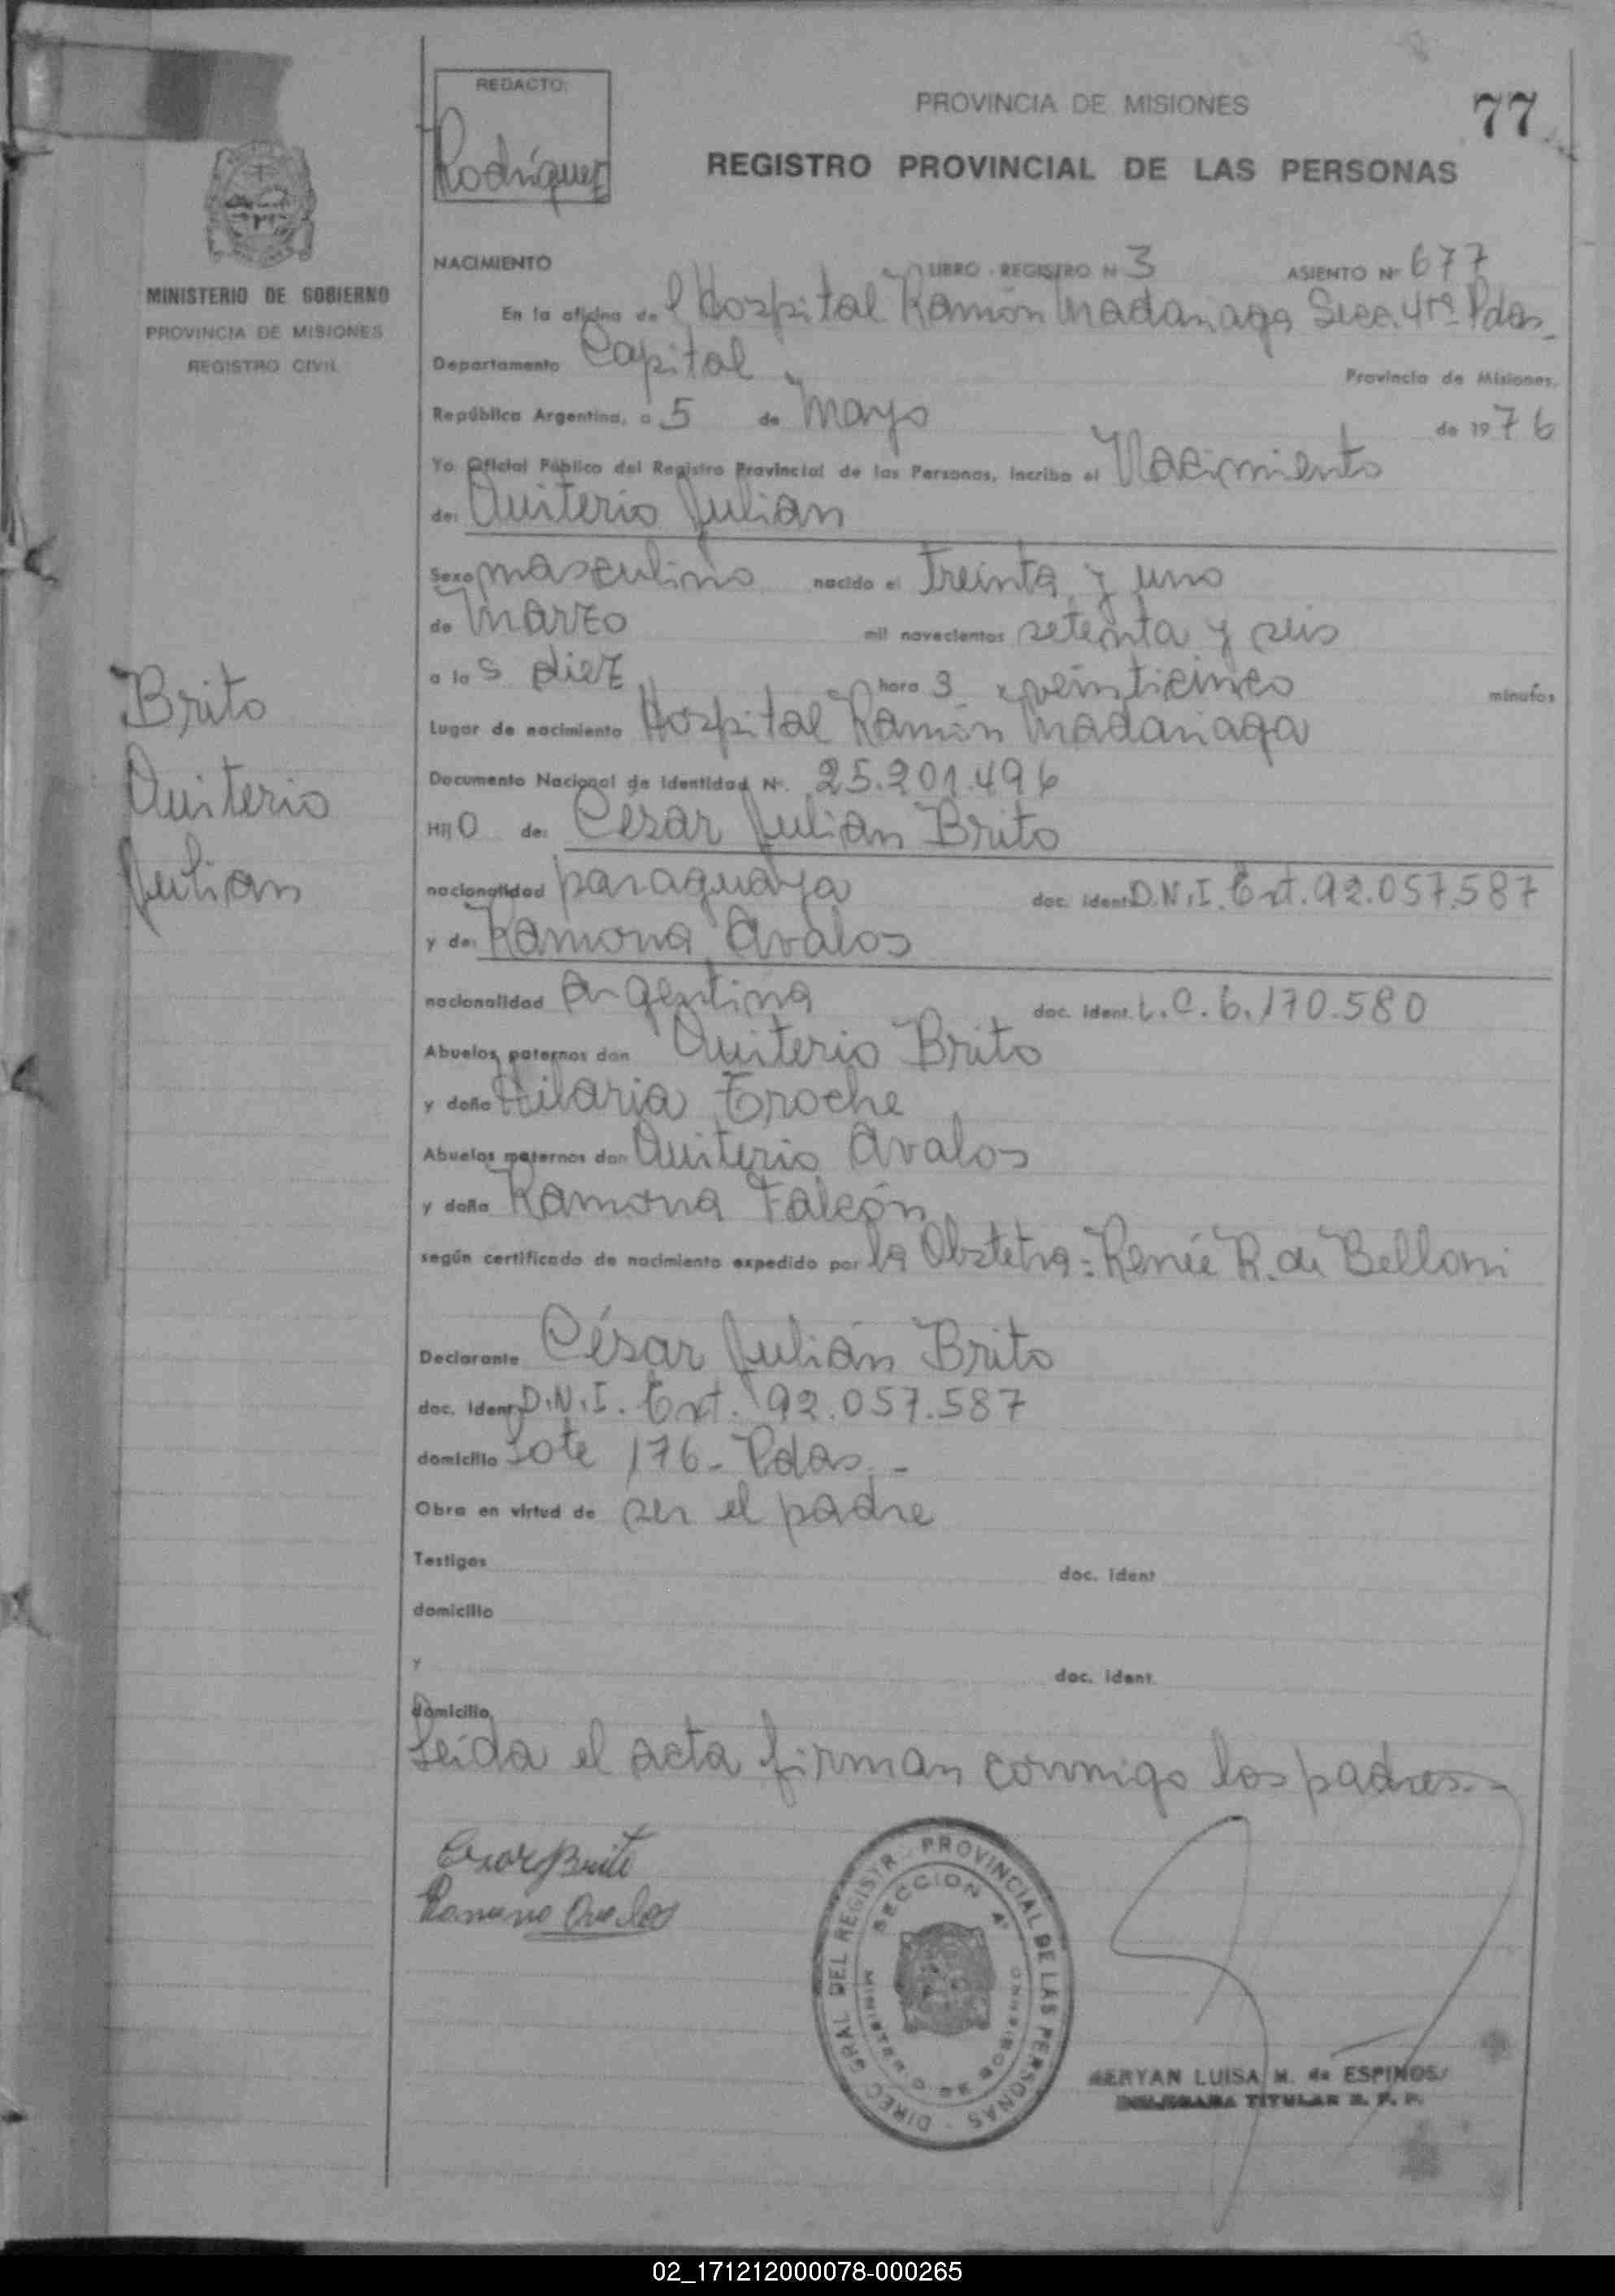 REDACTO:
Rodríguez
PROVINCIA DE MISIONES
77
REGISTRO PROVINCIAL DE LAS PERSONAS
MINISTERIO DE GOBIERNO
PROVINCIA DE MISIONES
REGISTRO CIVIL
NACIMIENTO LIBRO - REGISTRO Nº 3 ASIENTO Nº 677
En la oficina del Hospital Ramón Madariaga Secc. 4ta Pdas -
Departamento Capital Provincia de Misiones,
República Argentina, a 5 de Mayo de 1976
Yo Oficial Público del Registro Provincial de las Personas, inscribo el Nacimiento
de: Quiterio Julian
Sexo masculino nacido el treinta y uno
de Marzo mil novecientos setenta y seis
a las diez horas veinticinco minutos
Lugar de nacimiento Hospital Ramón Madariaga
Documento Nacional de Identidad Nº. 25.201.496
Hijo de: César Julián Brito
nacionalidad paraguaya doc. ident. D.N.I. Ext. 92.057.587
y de: Ramona Avalos
nacionalidad argentina doc. ident. L.C. 6.170.580
Abuelos paternos don Quiterio Brito
y doña Hilaria Troche
Abuelos maternos don Quiterio Avalos
y doña Ramona Falcón
según certificado de nacimiento expedido por la Obstetra: Renée R. de Belloni
Brito
Quiterio
Julian
Declarante César Julián Brito
doc. ident. D.N.I. Ext. 92.057.587
domicilio Lote 176 - Pdas. -
Obra en virtud de ser el padre
Testigos doc. ident
domicilio
y doc. ident.
domicilio
Leída el acta firman conmigo los padres. -
Cesar Brito
Ramona Avalos
DIREC GRAL DEL REGISTR PROVINCIAL DE LAS PERSONAS -
SECCION 4ª
MINISTERIO DE GOBIERNO
MERYAN LUISA M. de ESPINOSA
DELEGADA TITULAR R. P. P.
02_171212000078-000265